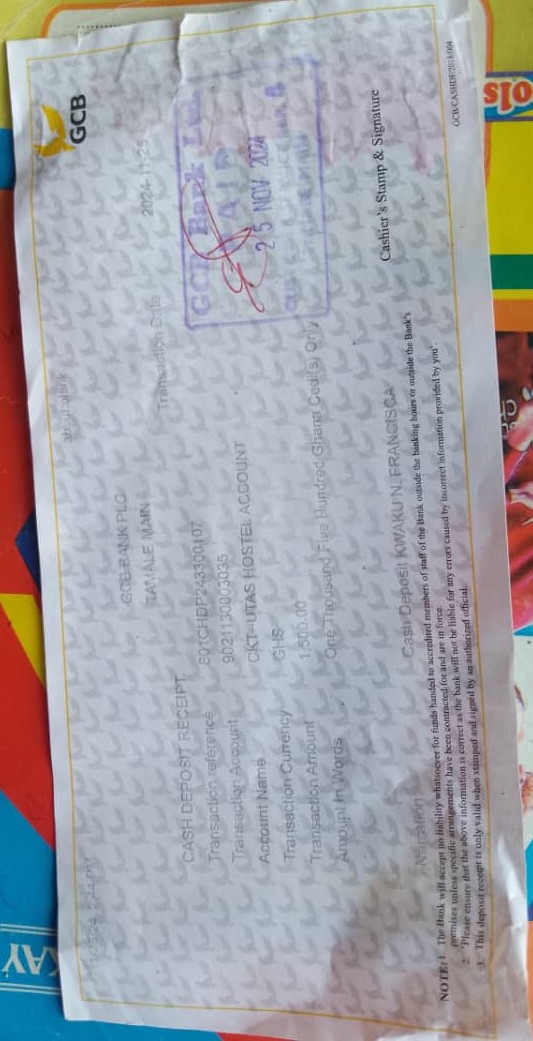 GCB
about:blank
GCB BANK PLC
TAMALE MAIN
Transaction Date 2024-11-25
CASH DEPOSIT RECEIPT
Transaction reference
Transaction Account 9021130003035
Account Name CKT-UTAS HOSTEL ACCOUNT
Transaction Currency GHS
Transaction Amount 1,500.00
Amount In Words One Thousand Five Hundred Ghana Cedi(s) Only
GCB Bank
25 NOV 2024
Narration Cash Deposit KWAKU N. FRANCISCA
Cashier's Stamp & Signature
NOTE: 1. The Bank will accept no liability whatsoever for funds handed to accredited members of staff of the Bank outside the banking hours or outside the Bank's
premises unless specific arrangements have been contracted for and are in force.
2. "Please ensure that the above information is correct as the bank will not be liable for any errors caused by incorrect information provided by you"
3. This deposit receipt is only valid when stamped and signed by an authorized official.
GCB/CASHDP/2018/004
ols
KAY